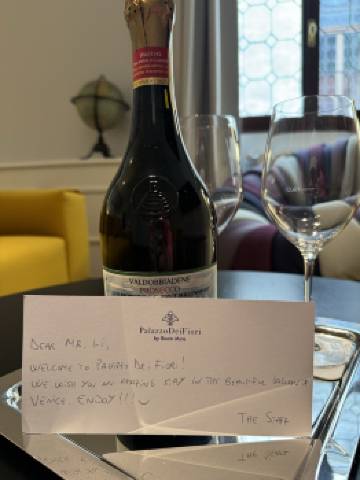 VALDOBBIADENE
PROSECCO
PalazzoDeiFiori
DEAR MR. LI,
WELCOME TO PALAZZO DEI FIORI!
WE WISH YOU AN AMAZING STAY IN THE BEAUTIFUL
VENICE. ENJOY!!!
THE STAFF